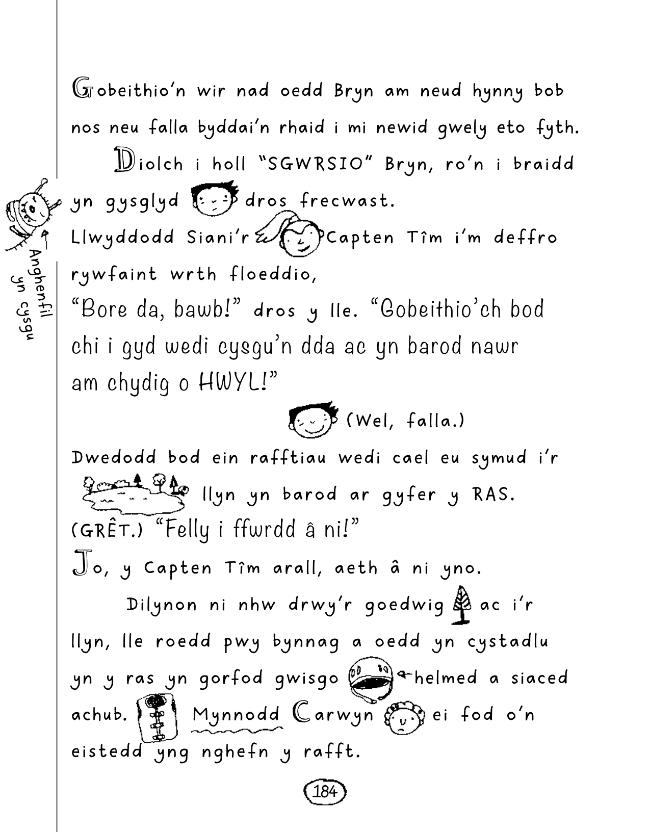 Gobeithio'n wir nad oedd Bryn am neud hynny bob
nos neu falla byddai'n rhaid i mi newid gwely eto fyth.
Diolch i holl "SGWRSIO" Bryn, ro'n i braidd
yn gysglyd dros frecwast.
Llwyddodd Siani'r Capten Tîm i'm deffro
rywfaint wrth floeddio,
"Bore da, bawb!" dros y lle. "Gobeithio'ch bod
chi i gyd wedi cysgu'n dda ac yn barod nawr
am chydig o HWYL!"
(Wel, falla.)
Dwedodd bod ein rafftiau wedi cael eu symud i'r
llyn yn barod ar gyfer y RAS.
(GRÊT.) "Felly i ffwrdd â ni!"
Jo, y Capten Tîm arall, aeth â ni yno.
Dilynon ni nhw drwy'r goedwig ac i'r
llyn, lle roedd pwy bynnag a oedd yn cystadlu
yn y ras yn gorfod gwisgo helmed a siaced
achub. Mynnodd Carwyn ei fod o'n
eistedd yng nghefn y rafft.
Anghenfil
yn cysgu
184